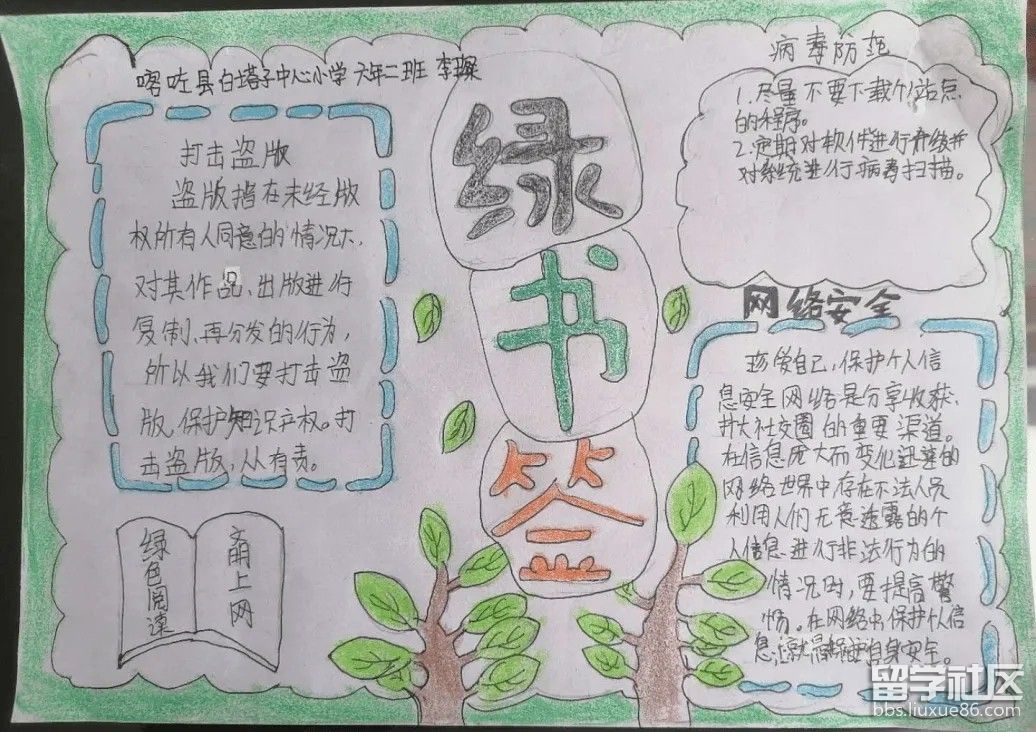 喀咗县白塔子中心小学六年二班 李
绿
书
签
打击盗版
盗版指在未经版
权所有人同意的情况下,
对其作品、出版进行
复制、再分发的行为,
所以我们要打击盗
版,保护知识产权。打
击盗版,从有责。
绿色阅读
文明上网
病毒防范
1.尽量不要下载个站点
的程序。
2.定期对软件进行升级并
对系统进行病毒扫描。
网络安全
珍爱自己,保护个人信
息安全网络是分享收获、
扩大社交圈的重要渠道。
在信息庞大而变化迅速的
网络世界中存在不法人员
利用人们无意透露的个
人信息进行非法行为的
情况时,要提高警
惕。在网络中保护个人信
息,自身安全。
留学社区
bbs.liuxue86.com